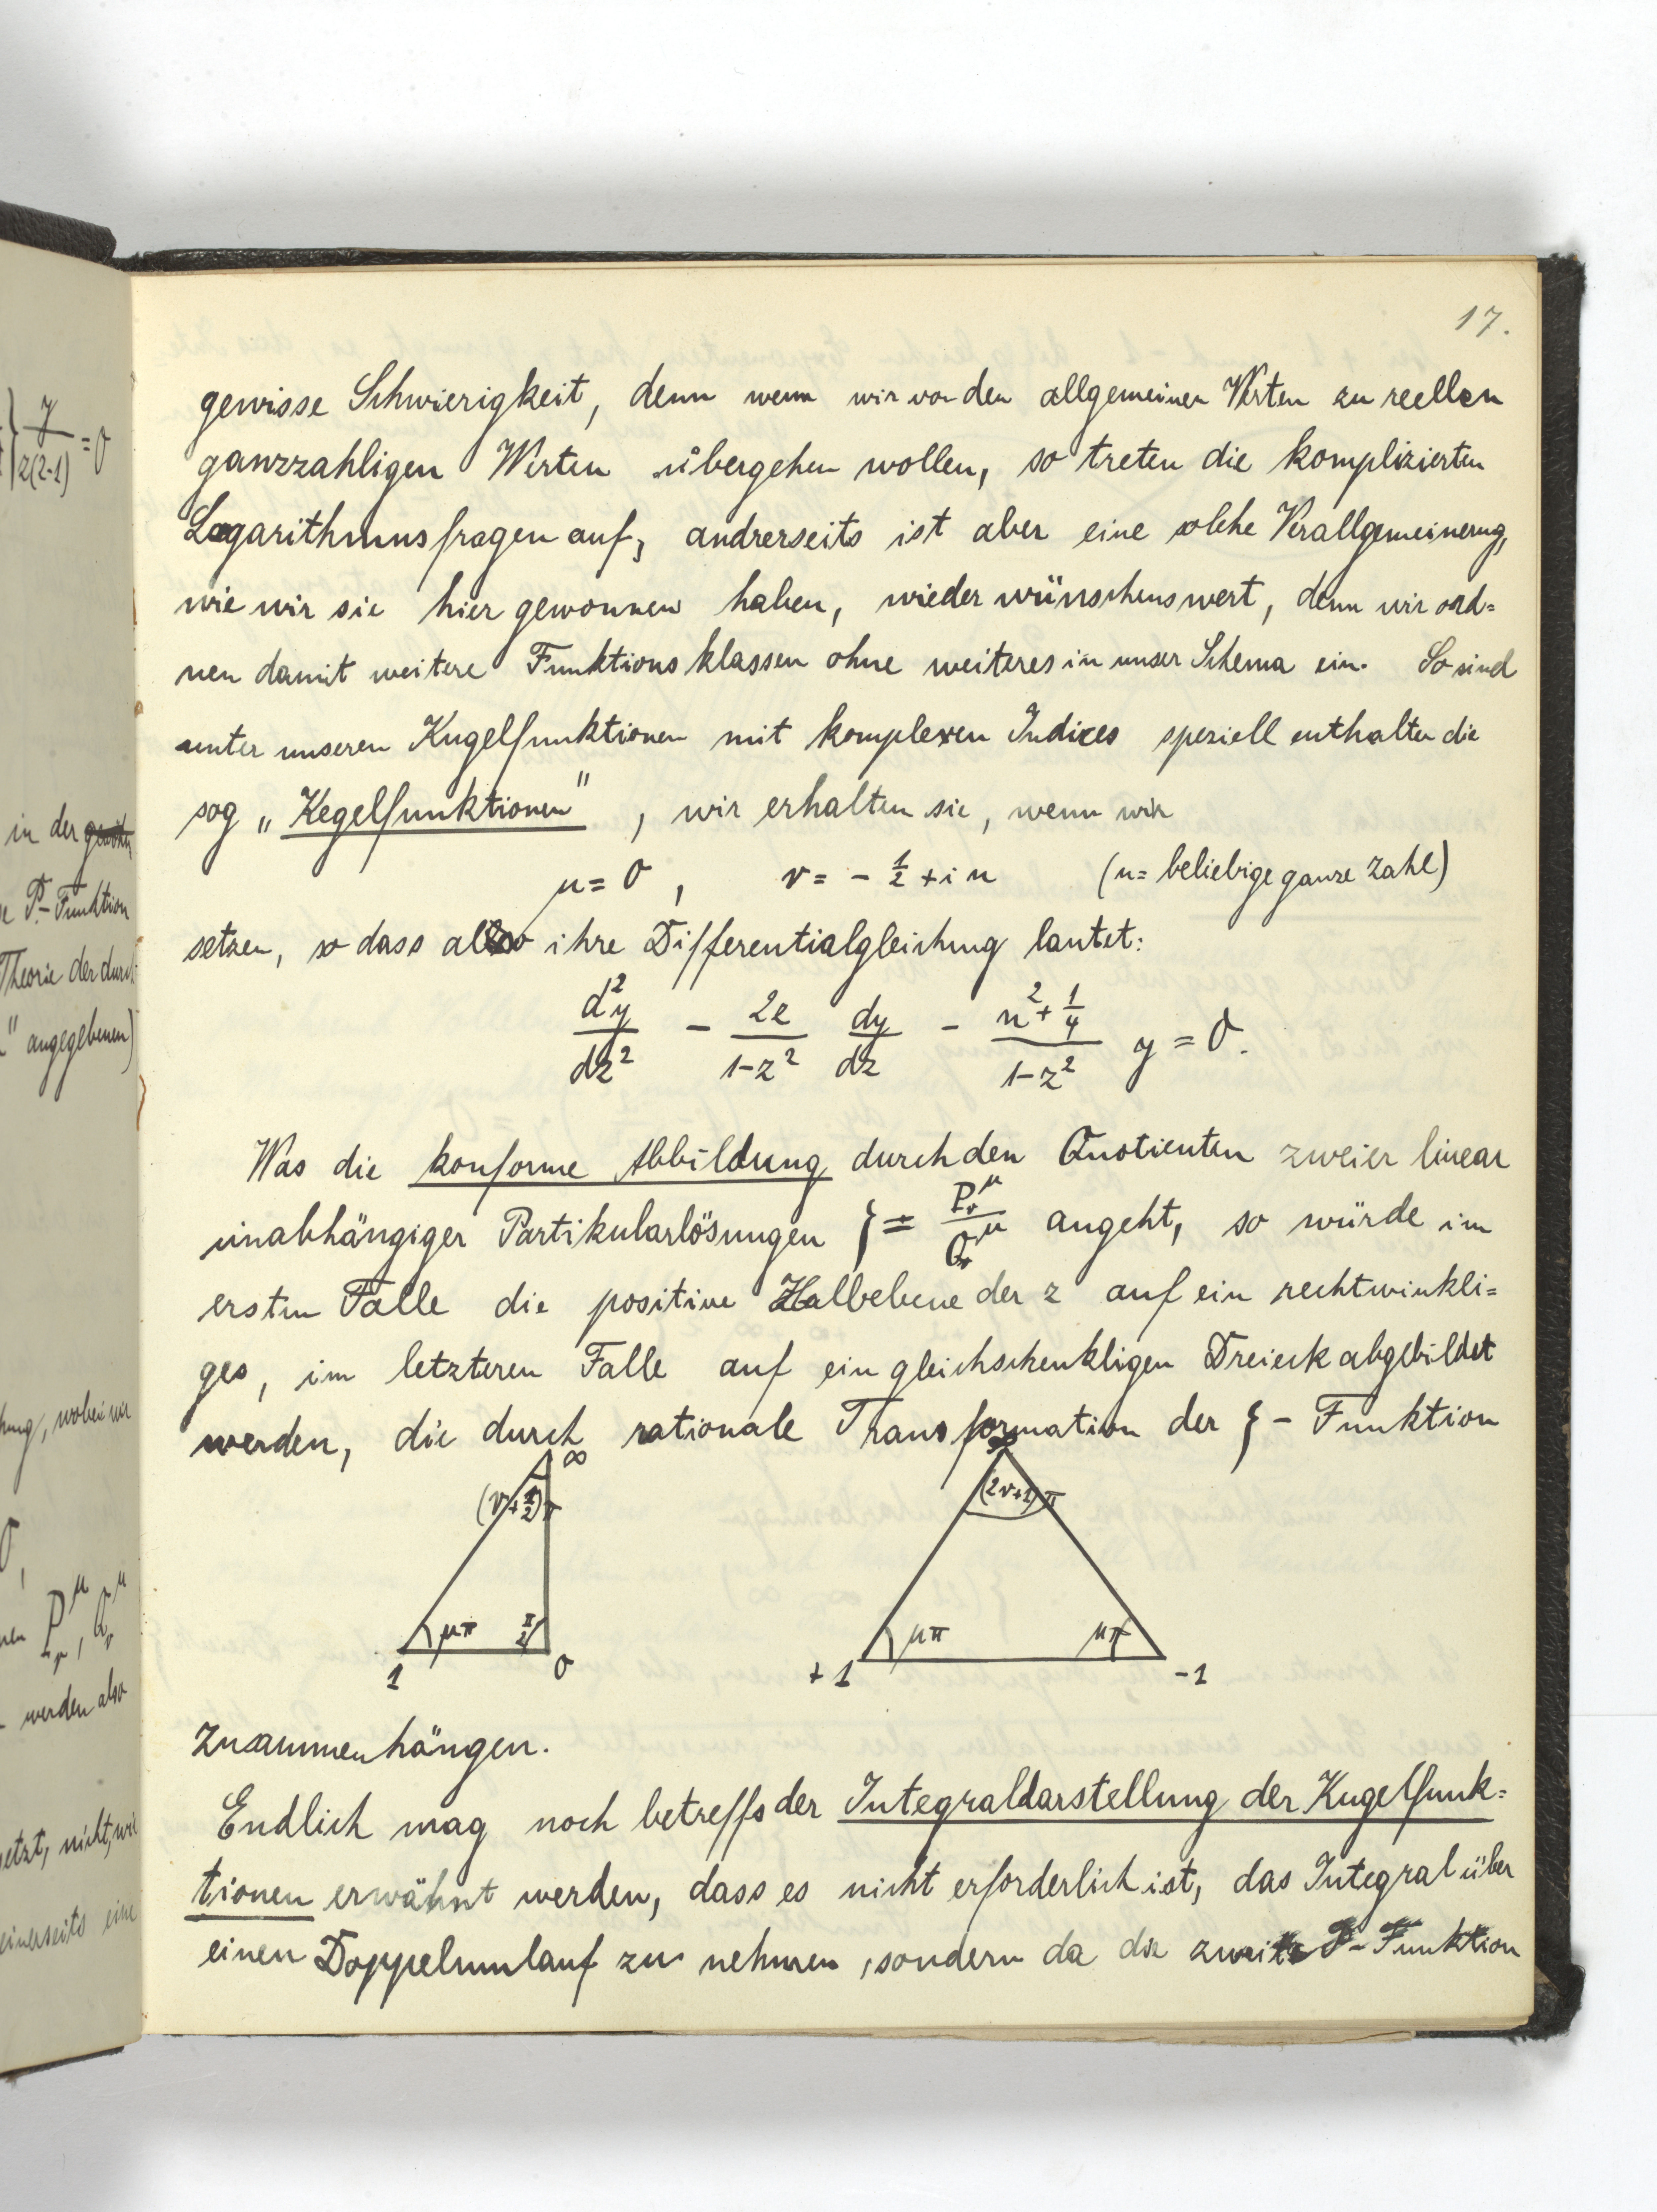 17.
gewisse Schwierigkeit, denn wenn wir von den allgemeinen Werten zu reellen
ganzzahligen Werten übergehen wollen, so treten die komplizierten
Logarithmusfragen auf, andrerseits ist aber eine solche Verallgemeinerug,
wie wir sie hier gewonnen haben, wieder wünschenswert, denn wir ord=
nen damit weitere Funktionsklassen ohne weiteres in unser Schema ein. So sind
unter unseren Kugelfunktionen mit komplexen Indices speziell enthalten die
sog „Kegelfunktionen", wir erhalten sie, wenn wir
μ = 0, ν = - 1/2 + i n (n = beliebige ganze Zahl)
setzen, so dass also ihre Differentialgleichung lautet:
d²y/dz² - 2z/(1-z²) dy/dz - (n² + 1/4)/(1-z²) y = 0.
Was die konforme Abbildung durch den Quotienten zweier linear
unabhängiger Partikularlösungen ζ = P_ν^μ/Q_ν^μ angeht, so würde im
ersten Falle die positive Halbebene der z auf ein rechtwinkli=
ges, im letzteren Falle auf ein gleichschenkligen Dreieck abgebildet
werden, die durch rationale Transformation der ζ - Funktion
∞ ∞
(ν+1/2)π (2ν+1)π
μπ π/2 μπ μπ
1 0 +1 -1
zusammenhängen.
Endlich mag noch betreffs der Integraldarstellung der Kugelfunk=
tionen erwähnt werden, dass es nicht erforderlich ist, das Integral über
einen Doppelumlauf zu nehmen, sondern da die zweite P-Funktion
y/z(z-1) = 0
in der
P-Funktion
Theorie der durch
" angegebenen)
wobei wir
0,
P_ν^μ, Q_ν^μ
werden also
nicht, wie
einerseits eine